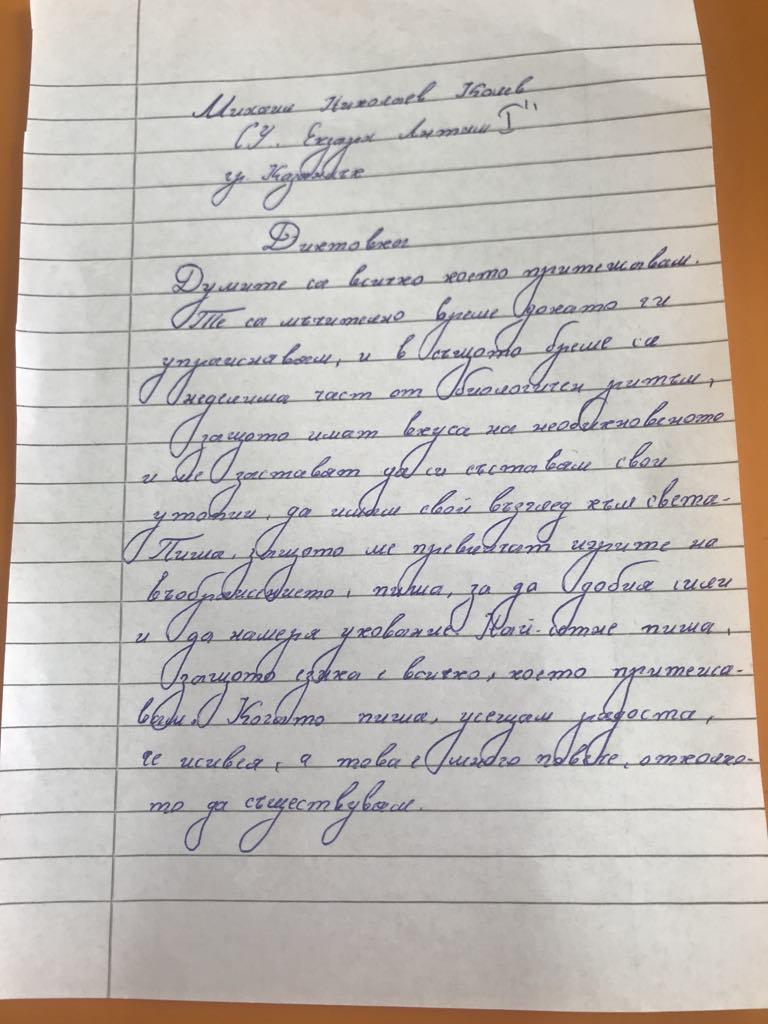 Михаил Николаев Колев
СУ. Екзарх Антим I"
гр. Казанлък
Диктовка
Думите са всичко което притежавам.
Те са мъчително време докато ги
упражнявам, и в същото време са
неделима част от биологичен ритъм,
защото имат вкуса на необикновеното
и ме заставят да си съставям свои
утопии, да имам свой възглед към света.
Пиша, защото ме превличат игрите на
въображението, пиша, за да добия сили
и да намеря упование. Най-сетне пиша,
защото езика е всичко, което притежа-
вам. Когато пиша, усещам радоста,
че живея, а това е много повече, отколко-
то да съществувам.